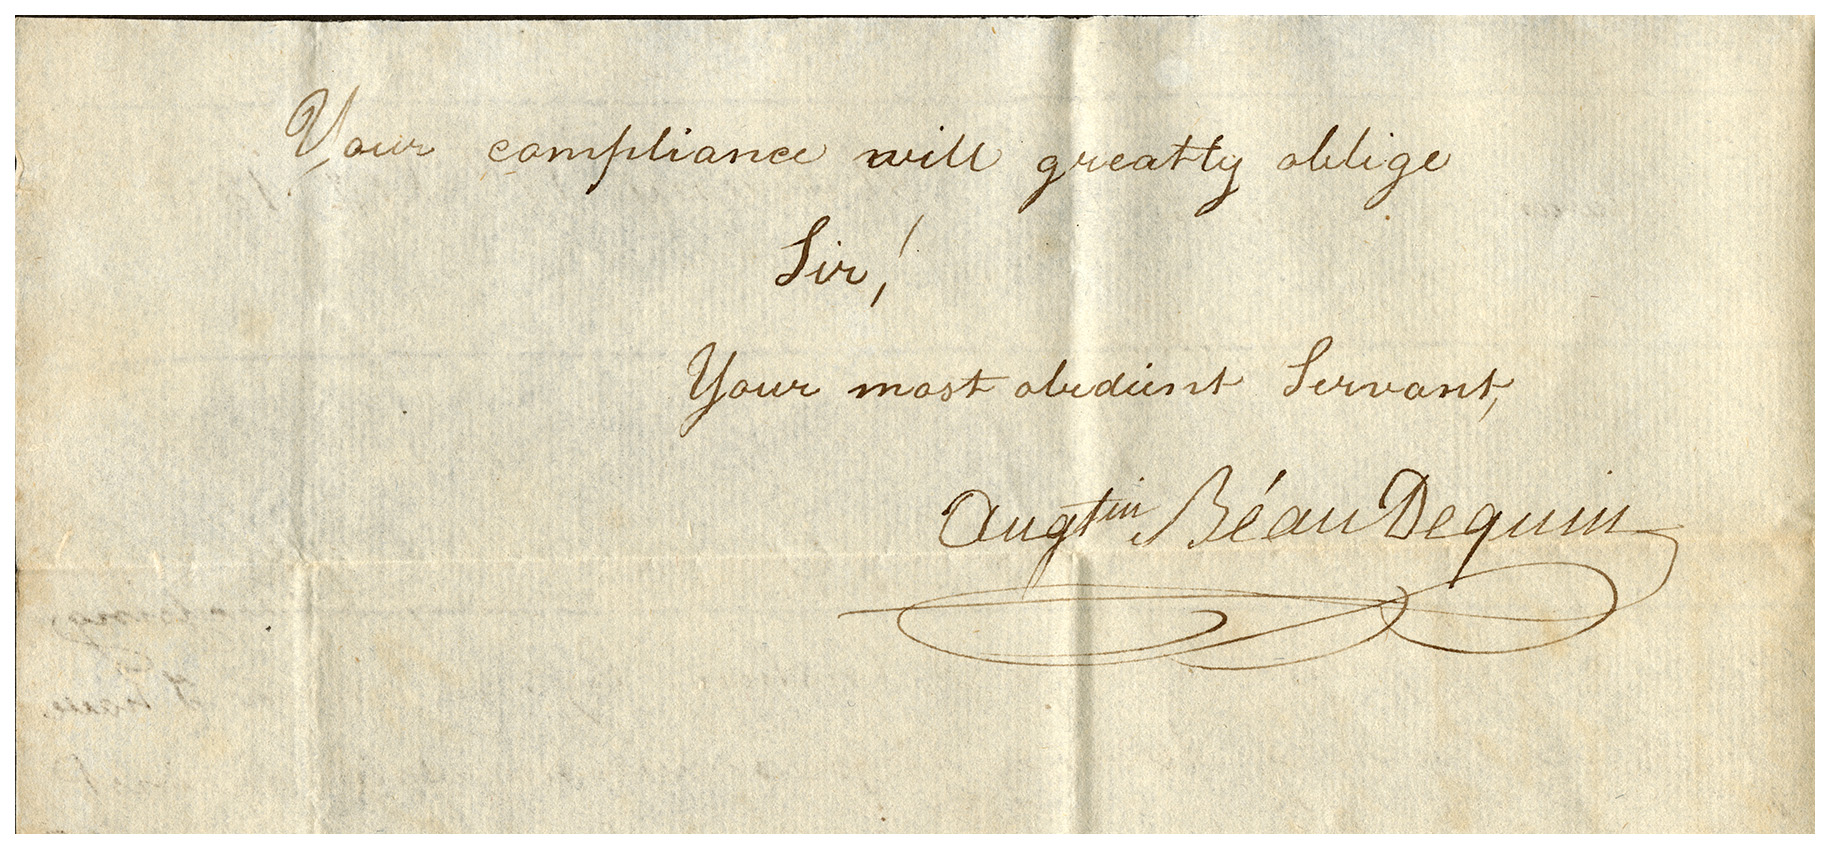 Your compliance will greatly oblige
Sir,!
Your most obedient Servant,
Augtin Béau Dequin